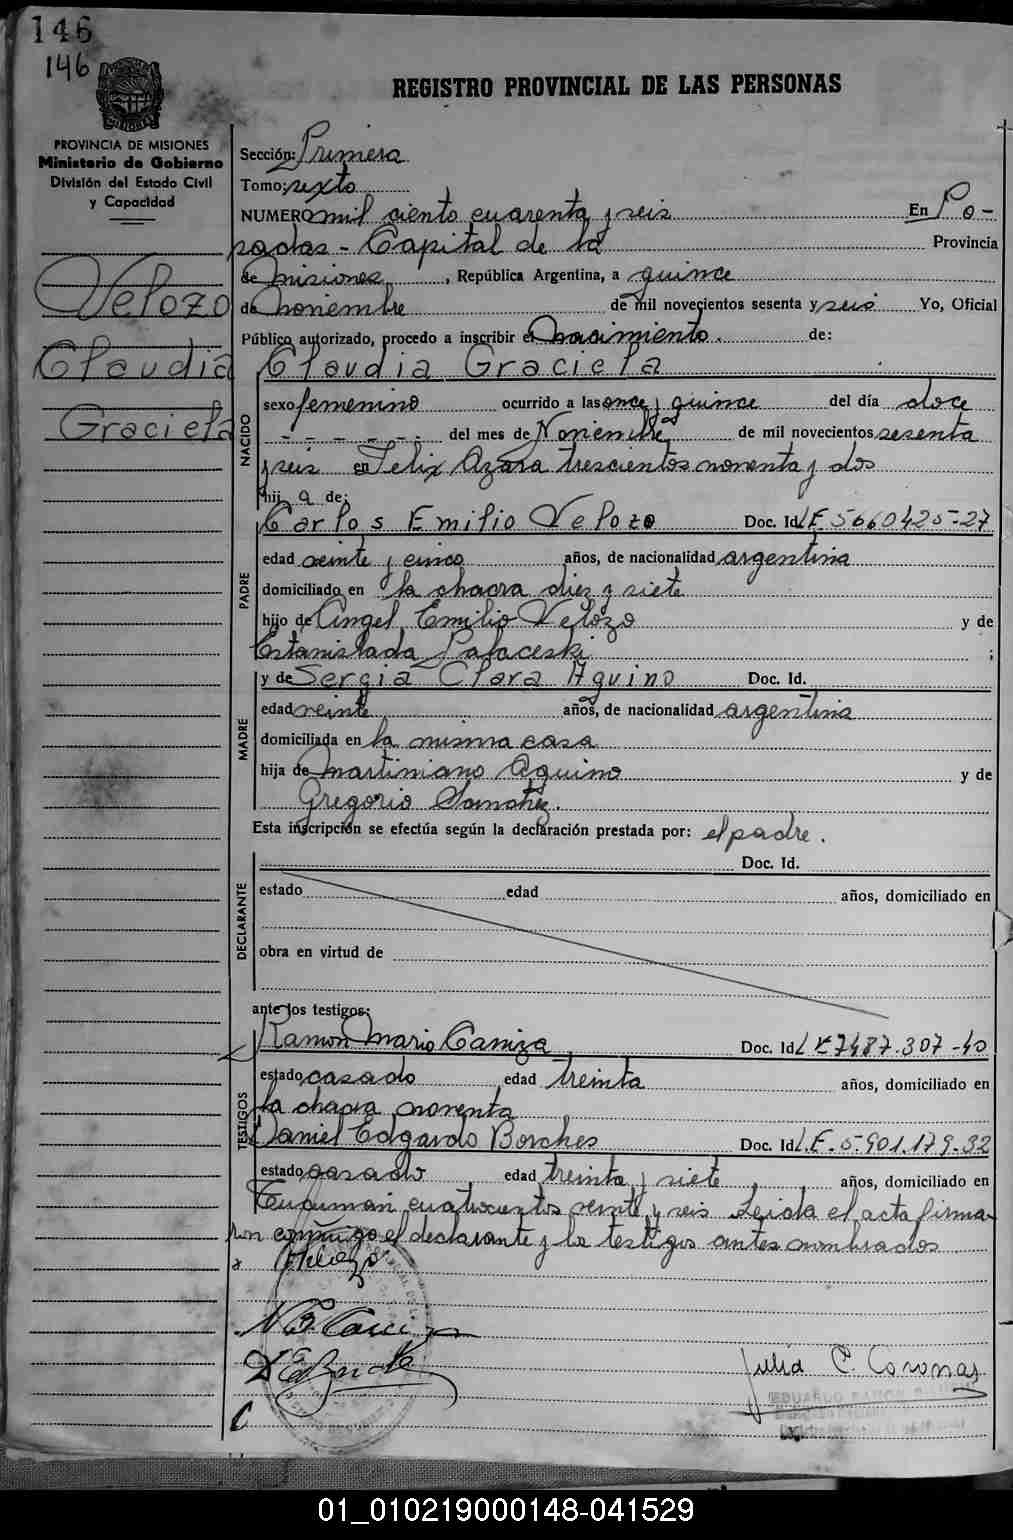 146
146
REGISTRO PROVINCIAL DE LAS PERSONAS
PROVINCIA DE MISIONES
Ministerio de Gobierno
División del Estado Civil
y Capacidad
Velozo
Claudia
Graciela
Sección: Primera
Tomo: sexto
NUMERO mil ciento cuarenta y seis En Po-
sadas - Capital de la Provincia
de misiones, República Argentina, a quince
de noviembre de mil novecientos sesenta y seis Yo, Oficial
Público autorizado, procedo a inscribir el nacimiento. de:
Claudia Graciela
NACIDO
sexo femenino ocurrido a las once y quince del día doce
- - - - - - del mes de Noviembre de mil novecientos sesenta
y seis en Felix Azara trescientos noventa y dos
hij a de:
Carlos Emilio Velozo Doc. Id. L.E. 5660425-27
PADRE
edad veinte y cinco años, de nacionalidad argentina
domiciliado en la chacra diez y siete
hijo de Angel Emilio Velozo y de
Estanislada Palaceski ;
y de Sergia Clara Aquino Doc. Id.
MADRE
edad veinte años, de nacionalidad argentina
domiciliada en la misma casa
hija de Martiniano Aquino y de
Gregorio Sanchez.
Esta inscripción se efectúa según la declaración prestada por: el padre.
DECLARANTE
Doc. Id.
estado edad años, domiciliado en
obra en virtud de
ante los testigos:
TESTIGOS
Ramon Mario Caniza Doc. Id. L E 7487.307-40
estado casado edad treinta años, domiciliado en
la chacra noventa
Daniel Edgardo Borches Doc. Id. L.E. 5.901.179-32
estado casado edad treinta y siete años, domiciliado en
Tucuman cuatrocientos veinte y seis Leida el acta firma-
ron conmigo el declarante y los testigos antes nombrados
x Velozo
Julia C. Coronas
EDUARDO RAMON
01_010219000148-041529